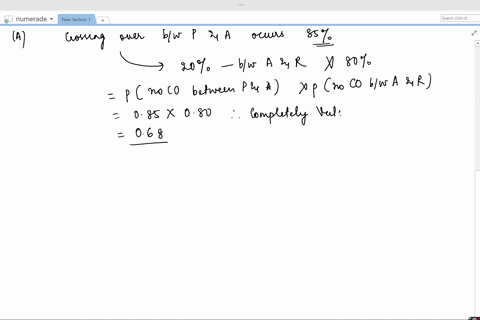 numerade
New Section 1
Search (Ctrl+E)
(A) Crossing over b/w P & A occurs 85%
20% — b/w A & R 80%
= P( no CO between P & A ) x p ( no CO b/w A & R )
= 0.85 x 0.80 ∴ Completely
= 0.68